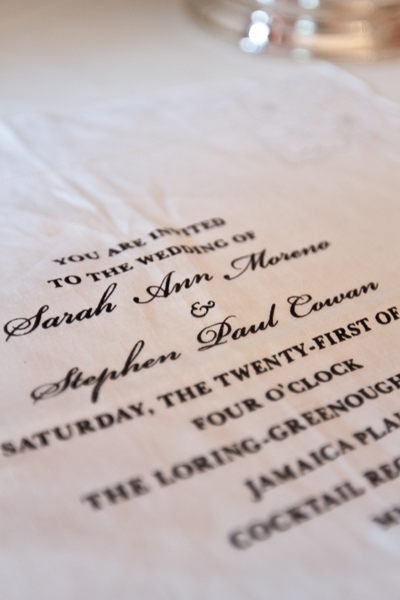 YOU ARE INVITED
TO THE WEDDING OF
Sarah Ann Moreno
&
Stephen Paul Cowan
SATURDAY, THE TWENTY-FIRST OF
FOUR O'CLOCK
THE LORING-GREENOUGH
JAMAICA PLAI
COCKTAIL REC